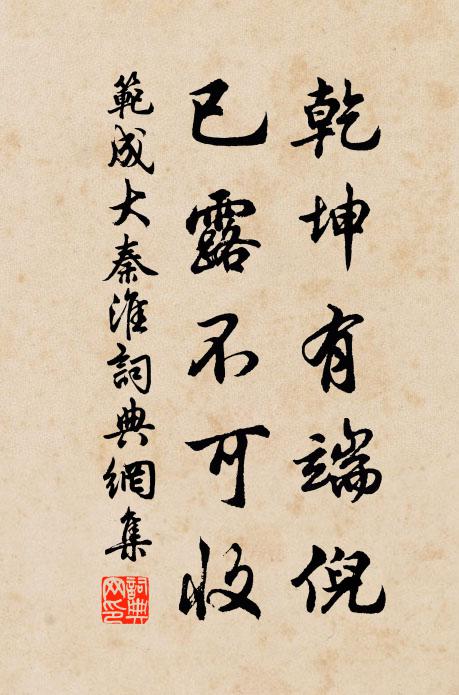 乾坤有端倪
已露不可收
範成大秦淮詞典網集
詞典網印